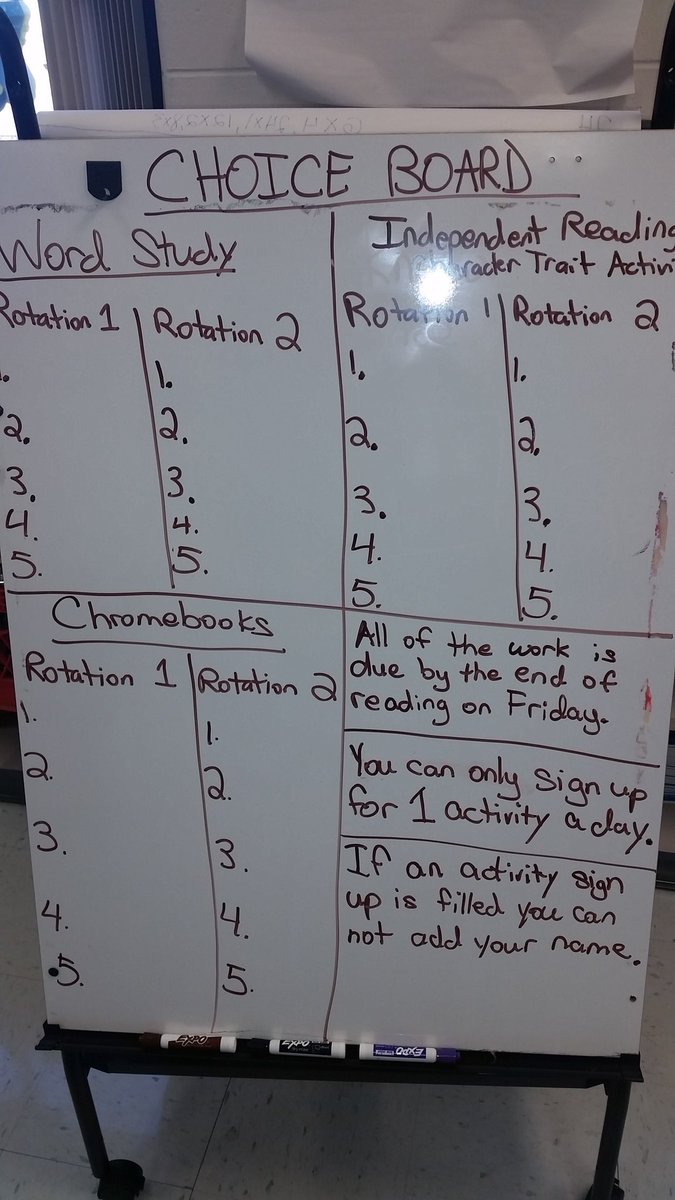 CHOICE BOARD
Word Study
Rotation 1
1.
2.
3.
4.
5.
Rotation 2
1.
2.
3.
4.
5.
Independent Reading
Trait
Rotation 1
1.
2.
3.
4.
5.
Rotation 2
1.
2.
3.
4.
5.
Chromebooks
Rotation 1
1.
2.
3.
4.
5.
Rotation 2
1.
2.
3.
4.
5.
All of the work is
due by the end of
reading on Friday.
You can only sign up
for 1 activity a day.
If an activity sign
up is filled you can
not add your name.
EXPO
EXPO
EXPO